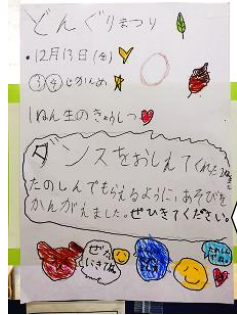 どんぐりまつり
・12月13日(金)
③④じかんめ
1ねん生のきょうしつ
ダンスをおしえてくれた
たのしんでもらえるように、あそびを
かんがえました。ぜひきてください。
ぜひ
きてね